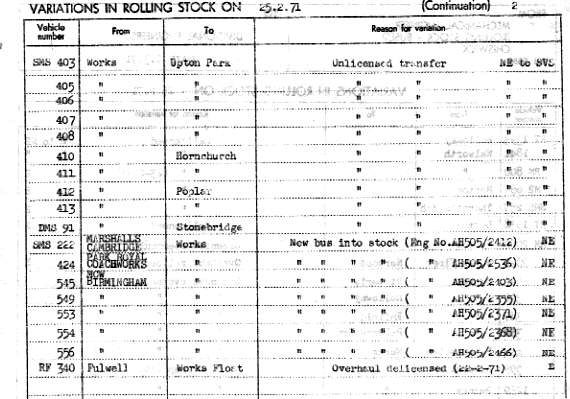 VARIATIONS IN ROLLING STOCK ON 25.2.71 (Continuation) 2
Vehicle number From To Reason for variation
SMS 403 Works Upton Park Unlicensed transfer NE to SVS
405 " " " " " " "
406 " " " " " " "
407 " " " " " " "
408 " " " " " " "
410 " Hornchurch " " " " "
411 " " " " " " "
412 " Poplar " " " " "
413 " " " " " " "
DMS 91 " Stonebridge " " " " "
SMS 222 MARSHALLS CAMBRIDGE Works New bus into stock (Eng No.AH505/2412) NE
424 PARK ROYAL COACHWORKS " " " " " ( " AH505/2536) NE
545 MCW BIRMINGHAM " " " " " ( " AH505/2403) NE
549 " " " " " " ( " AH505/2355) NE
553 " " " " " " ( " AH505/2371) NE
554 " " " " " " ( " AH505/2368) NE
556 " " " " " " ( " AH505/2466) NE
RF 340 Fulwell Works Float Overhaul delicensed (22-2-71) E